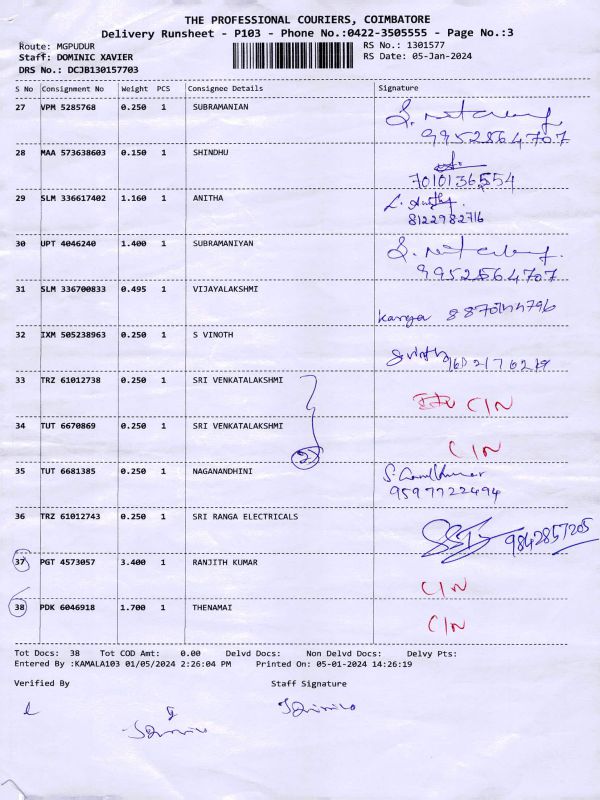 THE PROFESSIONAL COURIERS, COIMBATORE
Delivery Runsheet - P103 - Phone No.:0422-3505555 - Page No.:3
Route: MGPUDUR RS No.: 1301577
Staff: DOMINIC XAVIER RS Date: 05-Jan-2024
DRS No.: DCJB130157703
S No Consignment No Weight PCS Consignee Details Signature
27 VPM 5285768 0.250 1 SUBRAMANIAN
9952864707
28 MAA 573638603 0.150 1 SHINDHU
7010136554
29 SLM 336617402 1.160 1 ANITHA
8122982716
30 UPT 4046240 1.400 1 SUBRAMANIYAN
9952864707
31 SLM 336700833 0.495 1 VIJAYALAKSHMI
32 IXM 505238963 0.250 1 S VINOTH
33 TRZ 61012738 0.250 1 SRI VENKATALAKSHMI
C/N
34 TUT 6670869 0.250 1 SRI VENKATALAKSHMI
2 C/N
35 TUT 6681385 0.250 1 NAGANANDHINI
9597722494
36 TRZ 61012743 0.250 1 SRI RANGA ELECTRICALS
9842857205
37 PGT 4573057 3.400 1 RANJITH KUMAR
C/N
38 PDK 6046918 1.700 1 THENAMAI
C/N
Tot Docs: 38 Tot COD Amt: 0.00 Delvd Docs: Non Delvd Docs: Delvy Pts:
Entered By :KAMALA103 01/05/2024 2:26:04 PM Printed On: 05-01-2024 14:26:19
Verified By Staff Signature